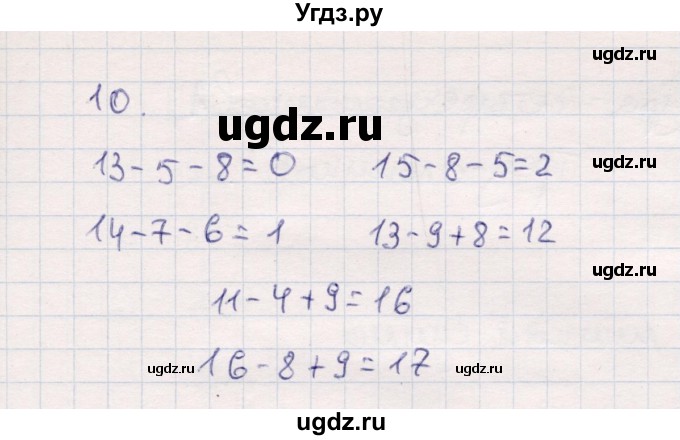 Угдз.ру
ugdz.ru
10.
ugdz.ru
13-5-8=0 15-8-5=2
ugdz.ru
14-7-6=1 13-9+8=12
ugdz.ru
11-4+9=16
ugdz.ru 16-8+9=17 ugdz.ru
ugdz.ru